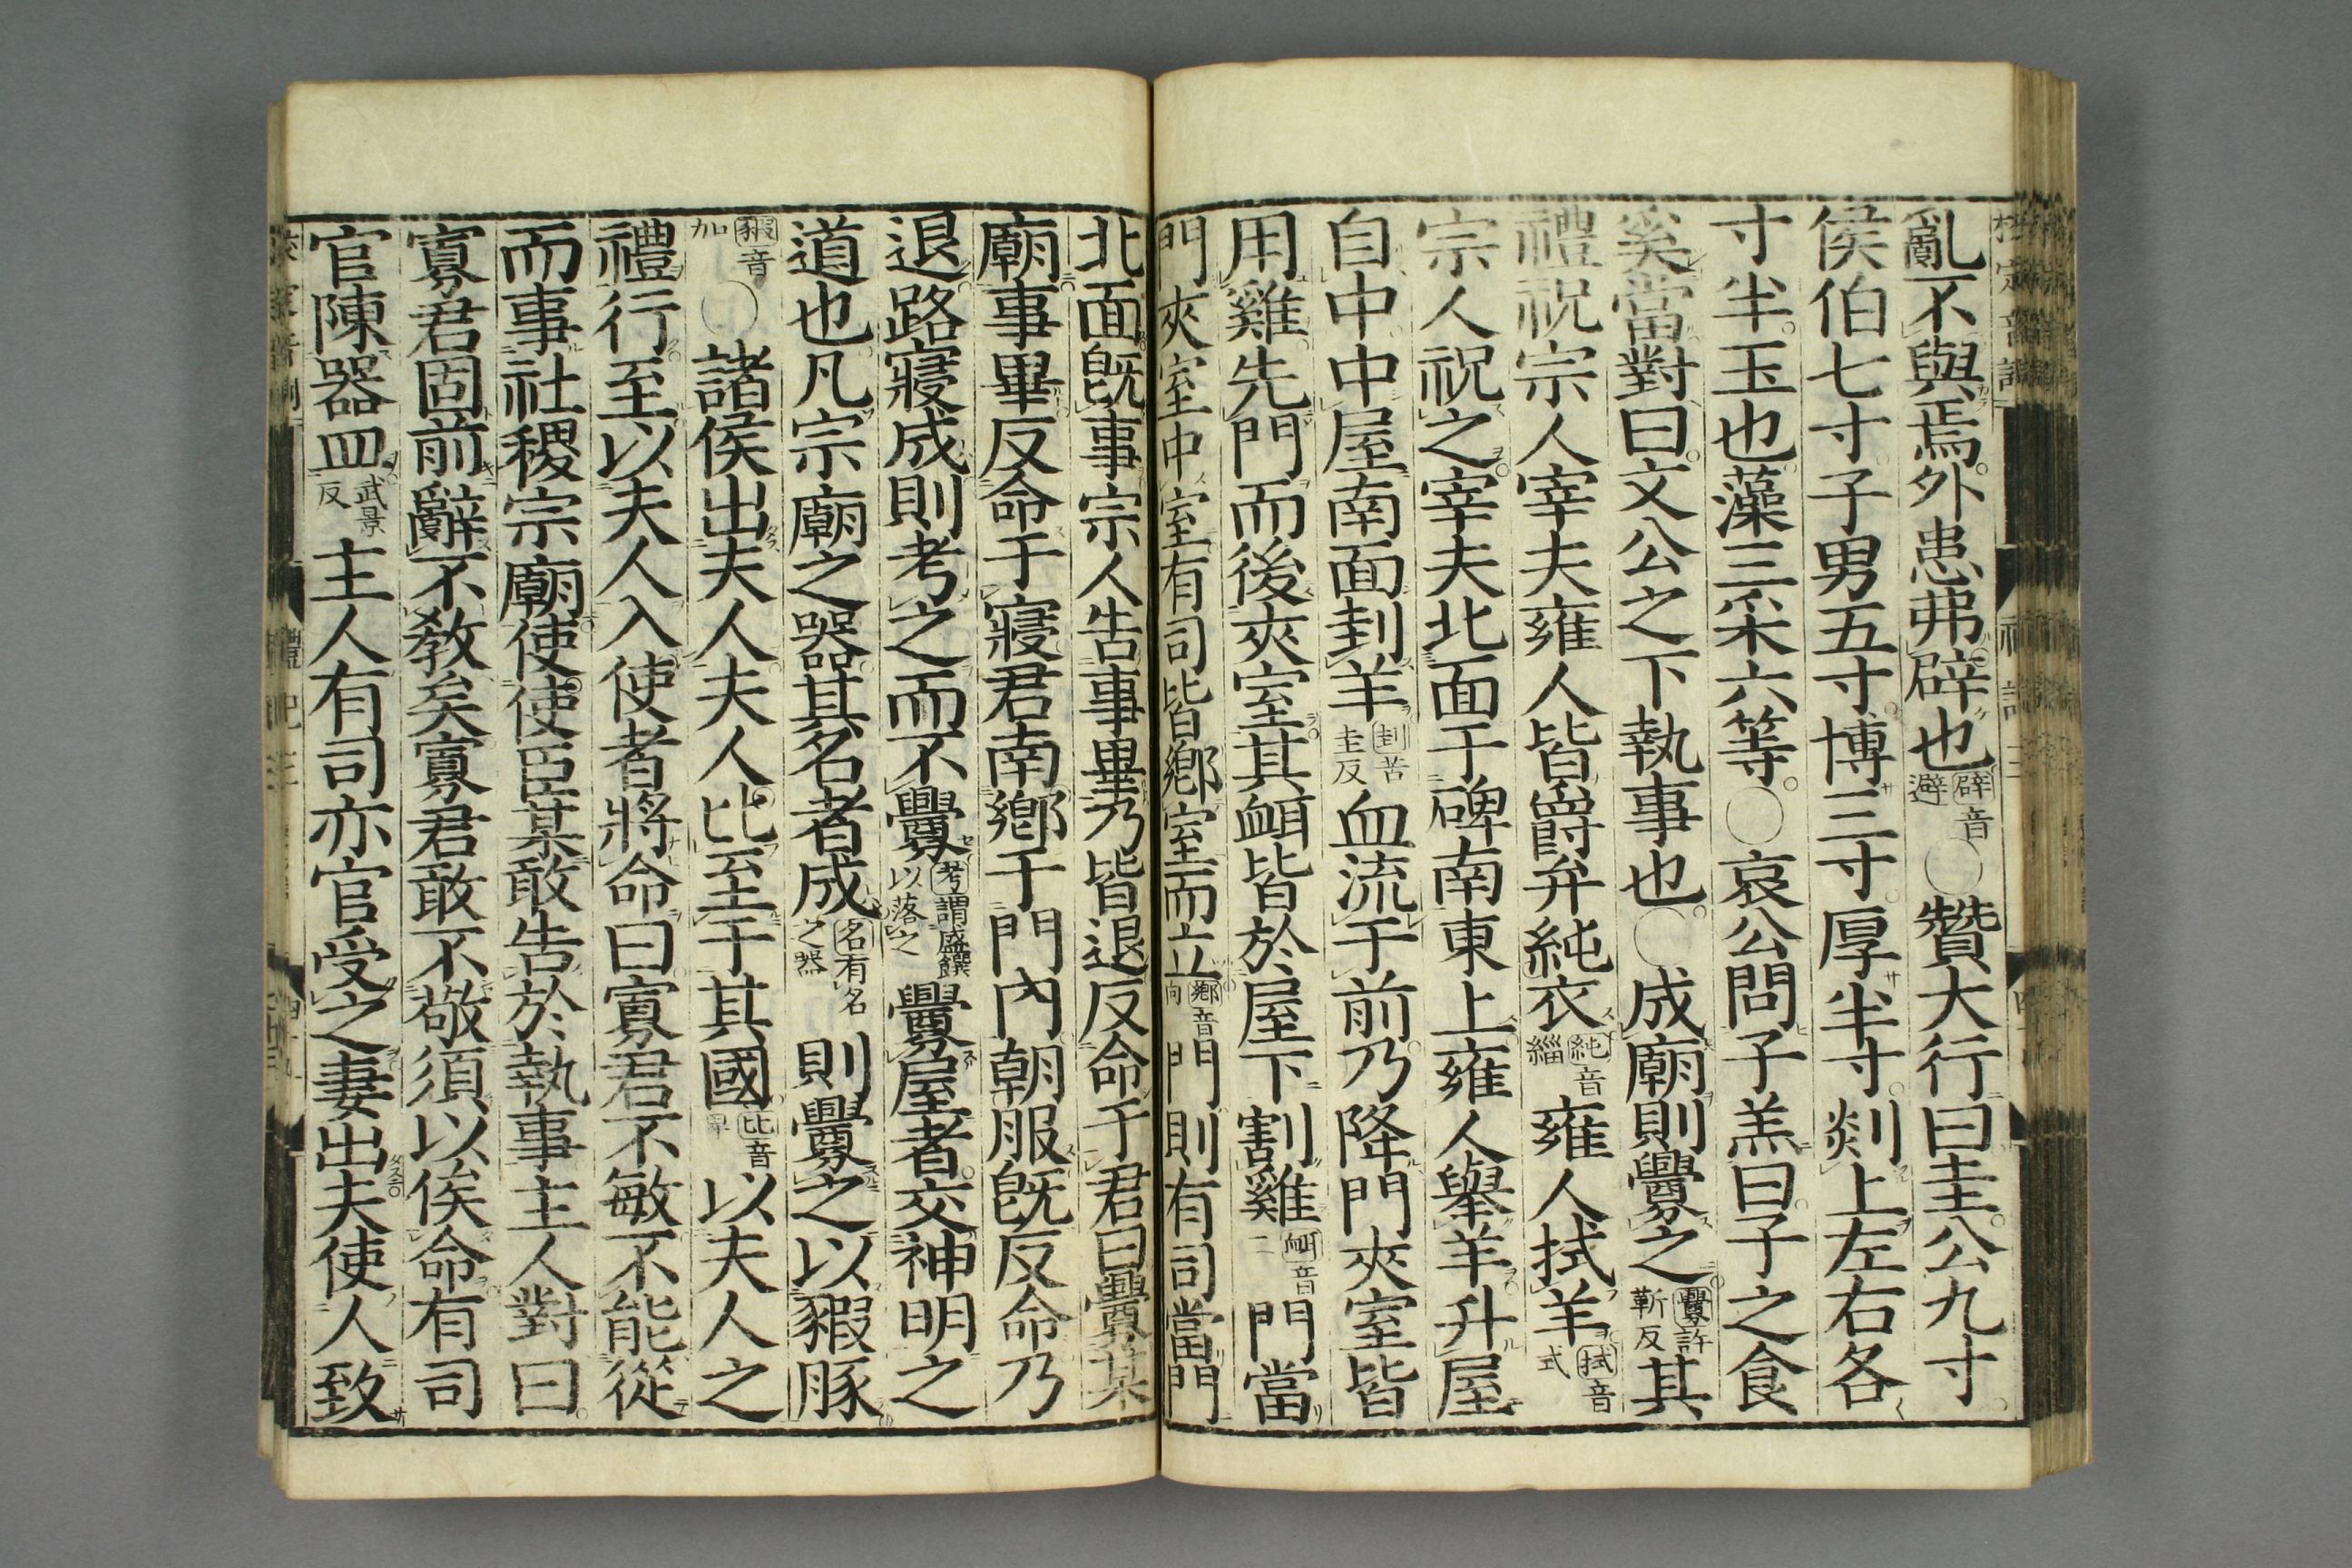 亂不與焉外患弗辟也辟音避○贊大行曰圭公九寸
侯伯七寸子男五寸博三寸厚半寸剡上左右各
寸半玉也藻三采六等○哀公問子羔曰子之食
奚當對曰文公之下執事也○成廟則釁之釁許靳反其
禮祝宗人宰夫雍人皆爵弁純衣純音緇雍人拭羊拭音式
宗人祝之宰夫北面于碑南東上雍人舉羊升屋
自中中屋南面刲羊刲苦圭反血流于前乃降門夾室皆
用雞先門而後夾室其衈皆於屋下割雞衈音二門當
門夾室中室有司皆鄉室而立鄉音向門則有司當門
北面旣事宗人告事畢乃皆退反命于君曰釁某
廟事畢反命于寢君南鄉于門內朝服旣反命乃
退路寢成則考之而不釁考謂盛饌以落之釁屋者交神明之
道也凡宗廟之器其名者成名有名之器則釁之以豭豚
豭音加○諸侯出夫人夫人比至于其國比音畀以夫人之
禮行至以夫人入使者將命曰寡君不敏不能從
而事社稷宗廟使使臣某敢告於執事主人對曰
寡君固前辭不敎矣寡君敢不敬須以俟命有司
官陳器皿武景反主人有司亦官受之妻出夫使人致